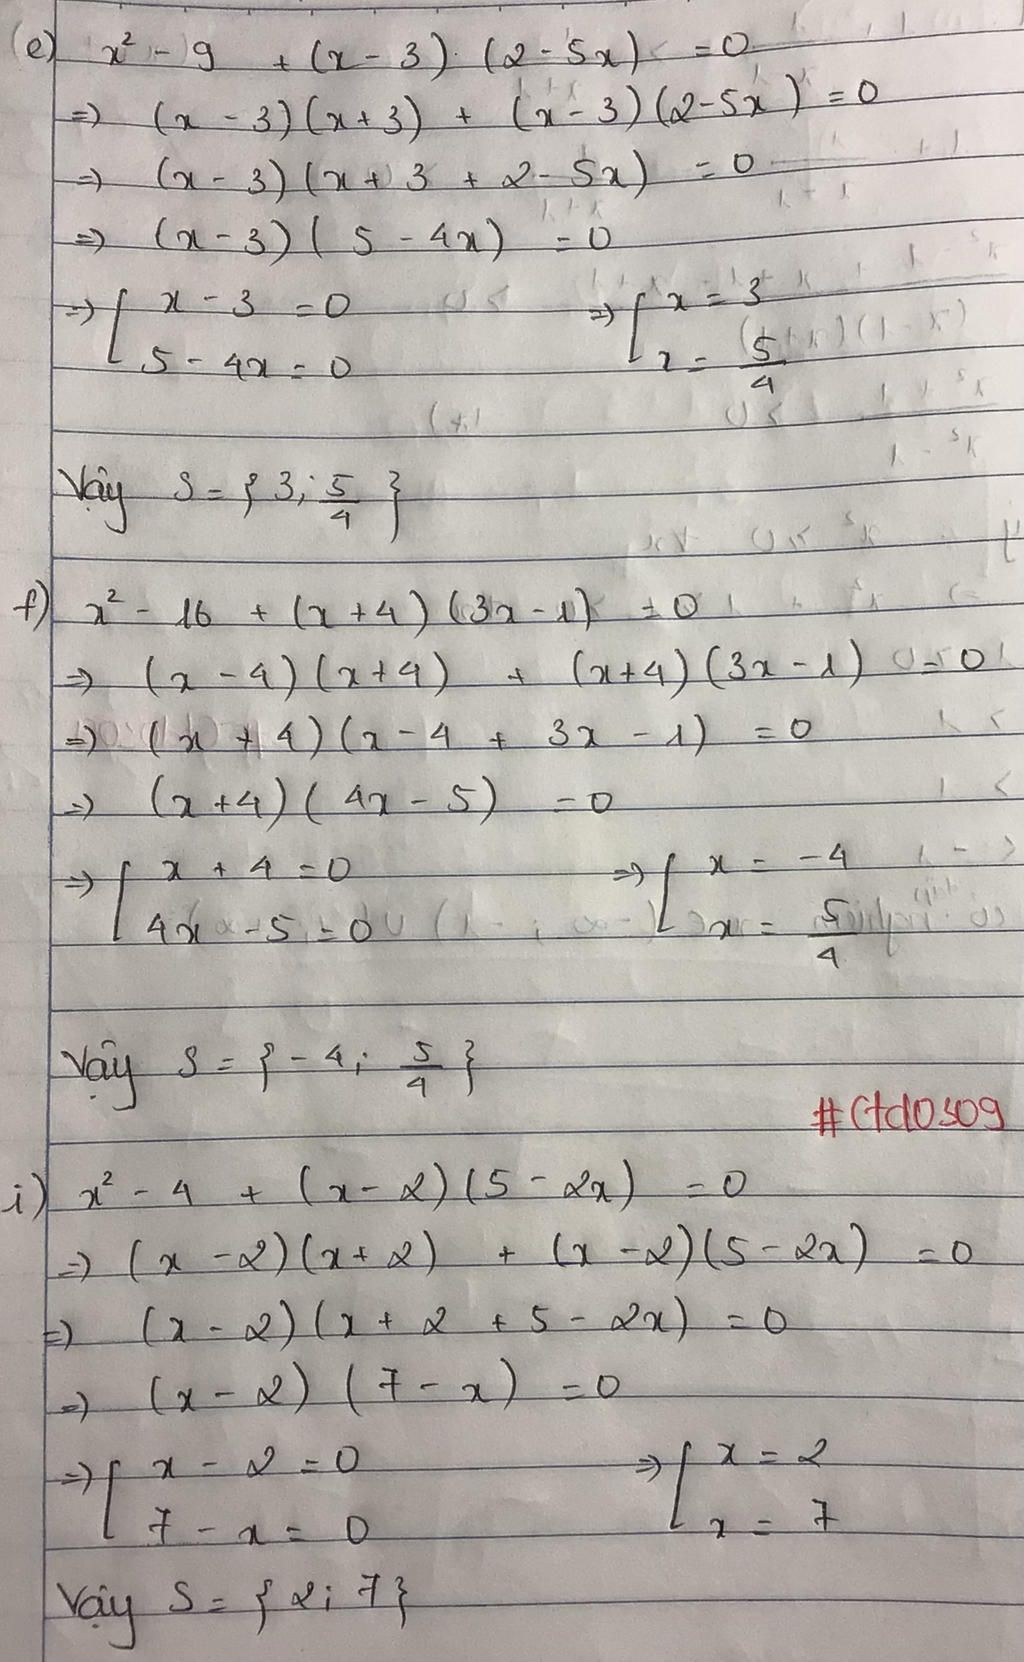 e) x² - 9 + (x - 3).(2 - 5x) = 0
=> (x - 3)(x + 3) + (x - 3)(2 - 5x) = 0
=> (x - 3)(x + 3 + 2 - 5x) = 0
=> (x - 3)(5 - 4x) = 0
=> [ x - 3 = 0 => [ x = 3
5 - 4x = 0 x = 5/4
Vậy S = { 3; 5/4 }
f) x² - 16 + (x + 4)(3x - 1) = 0
=> (x - 4)(x + 4) + (x + 4)(3x - 1) = 0
=> (x + 4)(x - 4 + 3x - 1) = 0
=> (x + 4)(4x - 5) = 0
=> [ x + 4 = 0 => [ x = -4
4x - 5 = 0 x = 5/4
Vậy S = { -4; 5/4 }
#Ctd0509
i) x² - 4 + (x - 2)(5 - 2x) = 0
=> (x - 2)(x + 2) + (x - 2)(5 - 2x) = 0
=> (x - 2)(x + 2 + 5 - 2x) = 0
=> (x - 2)(7 - x) = 0
=> [ x - 2 = 0 => [ x = 2
7 - x = 0 x = 7
Vậy S = { 2; 7 }